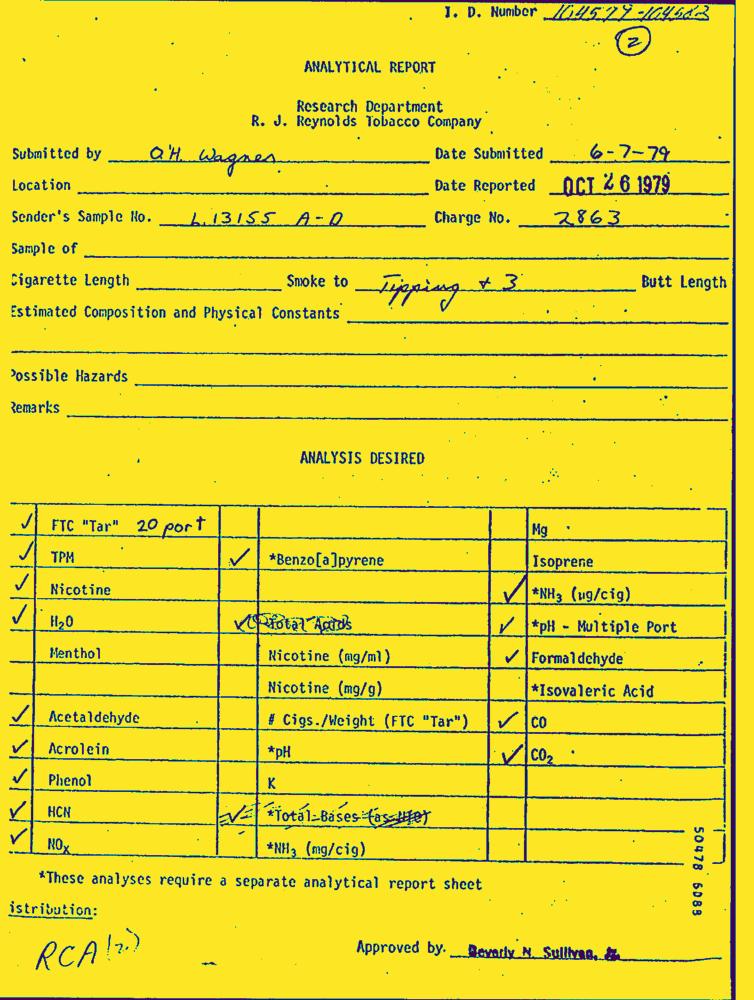 I. D. Number 104579-104583
2
ANALYTICAL REPORT
Research Department
R. J. Reynolds Tobacco Company
Submitted by O.H. Wagner Date Submitted 6-7-79
Location Date Reported OCT 26 1979
Sender's Sample No. L.13155 A-D Charge No. 2863
Sample of
Cigarette Length Smoke to Tipping + 3 Butt Length
Estimated Composition and Physical Constants
Possible Hazards
Remarks
ANALYSIS DESIRED
✓ FTC "Tar" 20 port Mg
✓ TPM ✓ *Benzo[a]pyrene Isoprene
✓ Nicotine ✓ *NH3 (ug/cig)
✓ H2O ✓ Total Acids ✓ *pH - Multiple Port
Menthol Nicotine (mg/ml) ✓ Formaldehyde
Nicotine (mg/g) *Isovaleric Acid
✓ Acetaldehyde # Cigs./Weight (FTC "Tar") ✓ CO
✓ Acrolein *pH ✓ CO2
✓ Phenol K
✓ HCN ✓ *Total Bases
✓ NOx *NH3 (mg/cig)
*These analyses require a separate analytical report sheet
istribution:
RCA
Approved by. Beverly N. Sullivan,
50478 6088